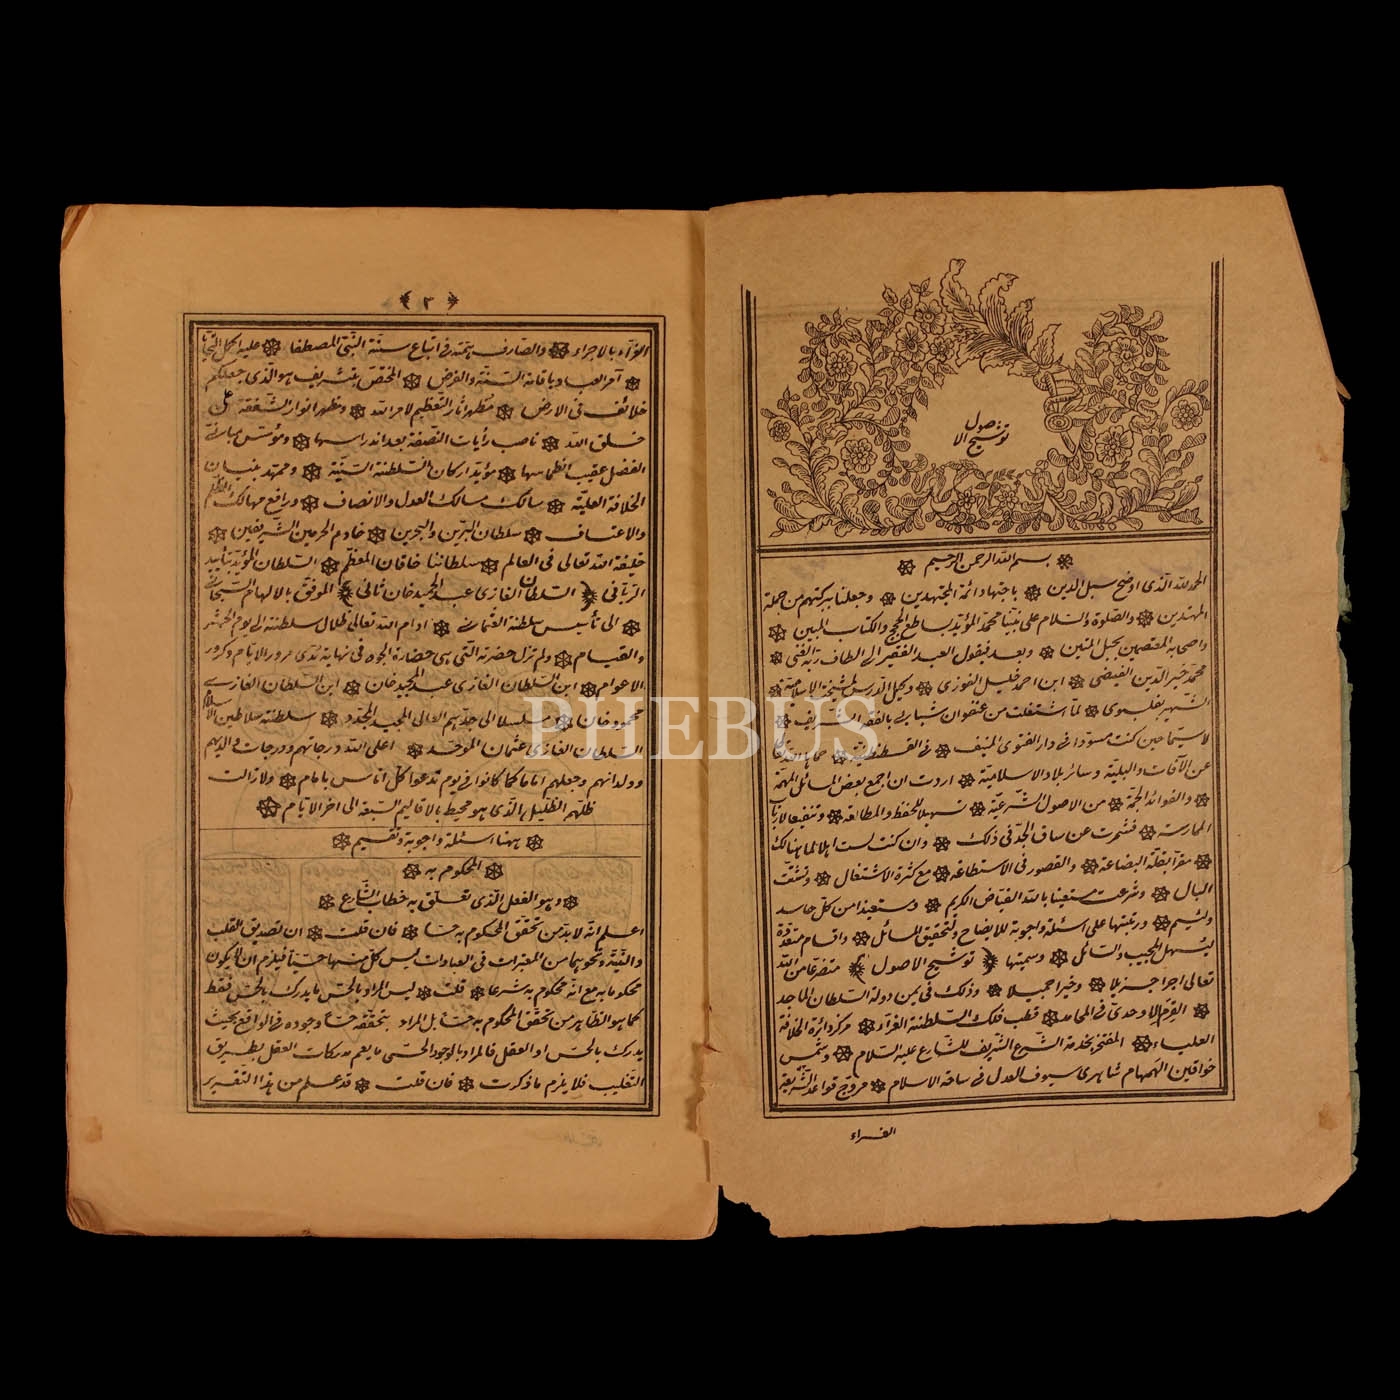 توشيح الاصول
بسم الله الرحمن الرحيم
الحمد لله الذى اوضح سبل الدين باجتهاد ائمة المجتهدين وجعلنا ببركتهم من جملة
المهتدين والصلوة والسلام على نبينا محمد المؤيد بساطع الحجج والكتاب المبين
واصحابه المعتصمين بحبل المتين وبعد فيقول العبد الفقير الى الطاف ربه الغنى
محمد خير الدين الفيضى ابن احمد خليل الفوزى وكيل الدرس لمشيخة الاسلامية
الشهير بفلبوى لما اشتغلت من عنفوان شبابى بالفقه الشريف
لا سيما حين كنت مسودا فى دار الفتوى المنيف فى القسطنطينية حماها الله تعالى
عن الآفات والبلية وسائر بلاد الاسلامية اردت ان اجمع بعض المسائل المهمة
والفوائد الجمة من الاصول الشرعية تسهيلا للحفظ والمطالعة وتنفيعا لارباب
الممارسة فشمرت عن ساق الجد فى ذلك وان كنت لست اهلا لما هنالك
مقرا بقلة البضاعة والقصور فى الاستطاعة مع كثرة الاشتغال وتشتت
البال وشرعت مستعينا بالله الفياض الكريم ومستعيذا من كل حاسد
ولئيم ورتبتها على اسئلة واجوبة للايضاح ولتحقيق المسائل واقسام متعددة
ليسهل للمجيب والسائل وسميتها توشيح الاصول متضرعا من الله
تعالى اجرا جزيلا وخيرا جميلا وذلك فى يمن دولة السلطان الماجد
القرم الاوحدى فى المحامد قطب فلك السلطنة الغراء مركز دائرة الخلافة
العلياء المفتخر بخدمة الشرع الشريف للشارع عليه السلام وشمس
خواقين الهمام شاهرى سيوف العدل فى ساقة الاسلام مروج قواعد الشريعة
الغراء
٢
الغراء بالاجراء والصارف همته فى اتباع سنة النبى المصطفا عليه اكمل التحايا
آمر العباد باقامة السنة والفرض المختص بتشريف هو الذى جعلكم
خلائف فى الارض مظهر آثار التعظيم لامر الله ومظهر انوار الشفقة على
خلق الله ناصب رأيات النصفة بعد اندراسها ومؤسس مبانى
الفضل عقيب انطماسها مؤيد اركان السلطنة السنية وممهد بنيان
الخلافة العلية سالك مسالك العدل والانصاف ورافع مهالك الظلم
والاعتساف سلطان البرين والبحرين خادم الحرمين الشريفين
خليفة الله تعالى فى العالم سلطاننا خاقان المعظم السلطان المؤيد بتأييد
الربانى السلطان الغازى عبد الحميد خان ثانى الموفق بالالهام السبحانى
الى تأسيس سلطنة العثمانى ادام الله تعالى ظلال سلطنته الى يوم الحشر
والقيام ولم تزل حضرته التى هى حضارة الجود فى نهاية مدى مرور الايام وكرور
الاعوام ابن السلطان الغازى عبد المجيد خان ابن السلطان الغازى
محمود خان مسلسلا الى جدهم العالى المجيد الممجد سلطنته سلاطين الاسلام
السلطان الغازى عثمان الموحد اعلى الله درجاتهم ودرجات والديهم
وولدانهم وجعلهم اناما كما كانوا فى يوم ندعوا كل اناس بامام ولا زالت
ظلهم الظليل الذى هو محيط بالاقاليم السبعة الى اخر الايام
ههنا اسئلة واجوبة وتقسيم
المحكوم به
وهو الفعل الذى تعلق به خطاب الشارع
اعلم انه لا بد من تحقق المحكوم به حسا فان قلت ان تصديق القلب
والنية ونحوهما من المعتبرات فى العبادات ليس كل منها حسيا فيلزم ان لا يكون
محكوما به مع انه محكوم به شرعا قلت ليس المراد بالحس ما يدرك بالحس فقط
كما هو الظاهر من تحقق المحكوم به حسا بل المراد بتحققه حسا وجوده فى الواقع بحيث
يدرك بالحس او العقل فالمراد بالوجود الحسى ما يعم مدركات العقل بطريق
التغليب فلا يلزم ما ذكرت فان قلت قد علم من هذا التقرير
PHEBUS